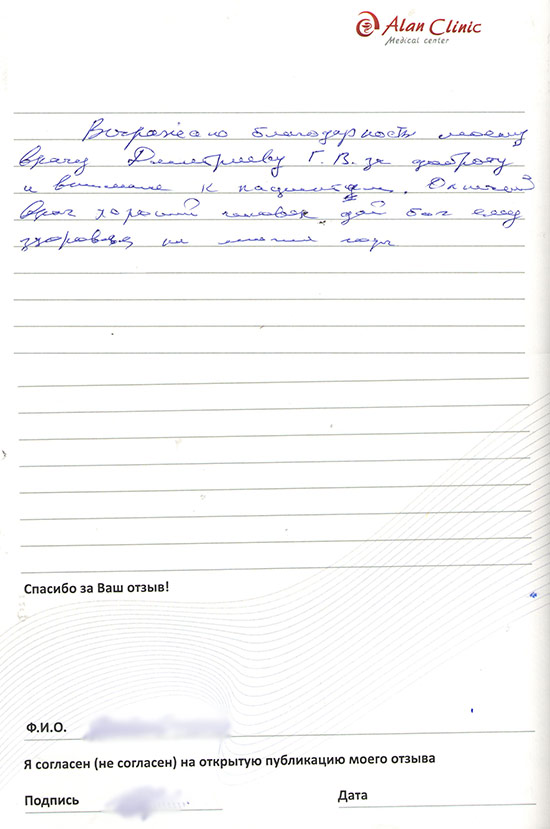 Alan Clinic
Medical center
Выражаю благодарность моему
врачу Дмитриеву Г. В. за доброту
и внимание к пациентам. Отличный
врач хороший человек, дай бог ему
здоровья на многие годы
Спасибо за Ваш отзыв!
Ф.И.О.
Я согласен (не согласен) на открытую публикацию моего отзыва
Подпись
Дата